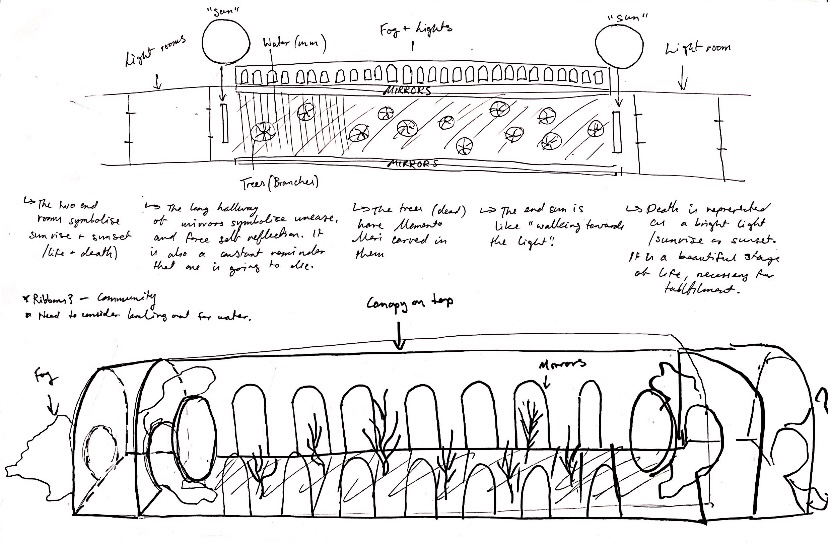 "Sun"
Fog + Lights
"Sun"
Light rooms
Water (mm)
Light room
MIRRORS
MIRRORS
Trees (Branches)
↳ The two end
rooms symbolise
sunrise + sunset
/life + death)
↳ The long hallway
of mirrors symbolize unease,
and force self reflection. It
is also a constant reminder
that one is going to die.
↳ The trees (dead)
have Memento
Mori carved in
them
↳ The end sun is
like "walking towards
the light"?
↳ Death is represented
as a bright light
/sunrise or sunset.
It is a beautiful stage
of life, necessary for
fulfilment.
* Ribbons? - Community
* Need to consider leaking out for water.
Canopy on top
Fog
Mirrors